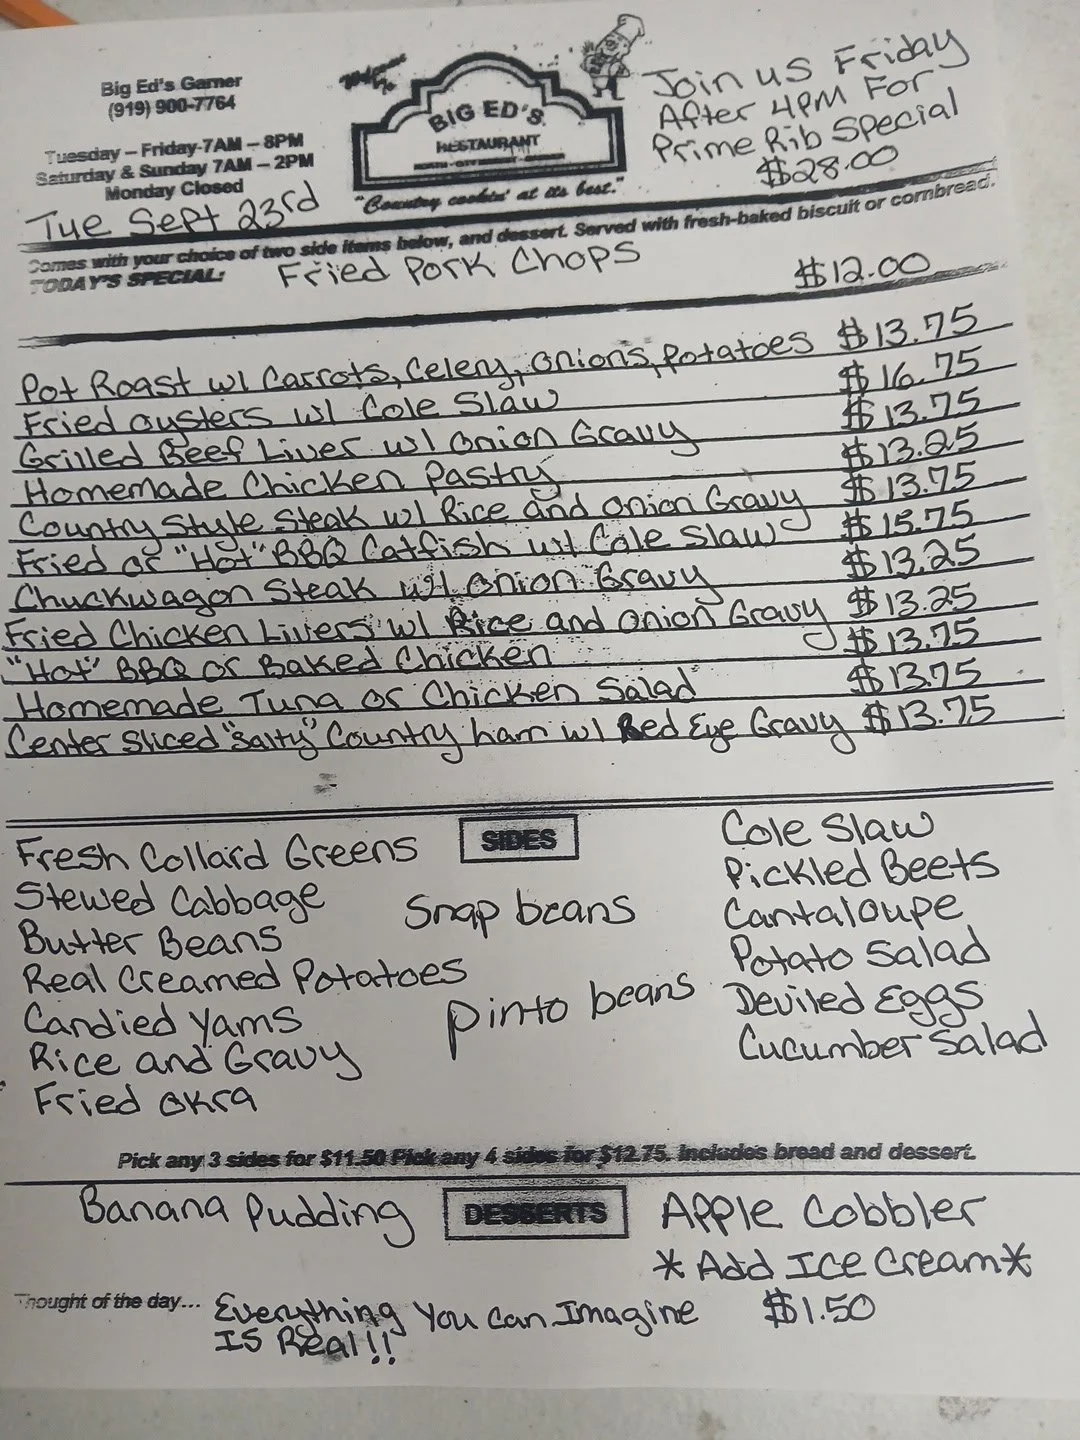 Big Ed's Garner
(919) 900-7764
Tuesday – Friday-7AM – 8PM
Saturday & Sunday 7AM – 2PM
Monday Closed
Tue Sept 23rd
Welcome To
BIG ED'S
RESTAURANT
"Country cookin' at its best."
Join us Friday
After 4PM For
Prime Rib Special
$28.00
Comes with your choice of two side items below, and dessert. Served with fresh-baked biscuit or cornbread.
TODAY'S SPECIAL: Fried Pork Chops $12.00
Pot Roast w/ Carrots, Celery, Onions, Potatoes $13.75
Fried oysters w/ Cole Slaw $16.75
Grilled Beef Liver w/ Onion Gravy $13.75
Homemade Chicken Pastry $13.25
Country Style Steak w/ Rice and Onion Gravy $13.75
Fried or "Hot" BBQ Catfish w/ Cole Slaw $15.75
Chuckwagon Steak w/ Onion Gravy $13.25
Fried Chicken Livers w/ Rice and Onion Gravy $13.25
"Hot" BBQ or Baked Chicken $13.75
Homemade Tuna or Chicken Salad $13.75
Center Sliced "Salty" Country ham w/ Red Eye Gravy $13.75
SIDES
Fresh Collard Greens
Stewed Cabbage
Butter Beans
Real Creamed Potatoes
Candied Yams
Rice and Gravy
Fried Okra
Snap beans
pinto beans
Cole Slaw
Pickled Beets
Cantaloupe
Potato Salad
Deviled Eggs
Cucumber Salad
Pick any 3 sides for $11.50 Pick any 4 sides for $12.75. Includes bread and dessert.
DESSERTS
Banana Pudding
Apple Cobbler
*Add Ice Cream*
$1.50
Thought of the day... Everything You Can Imagine
Is Real!!